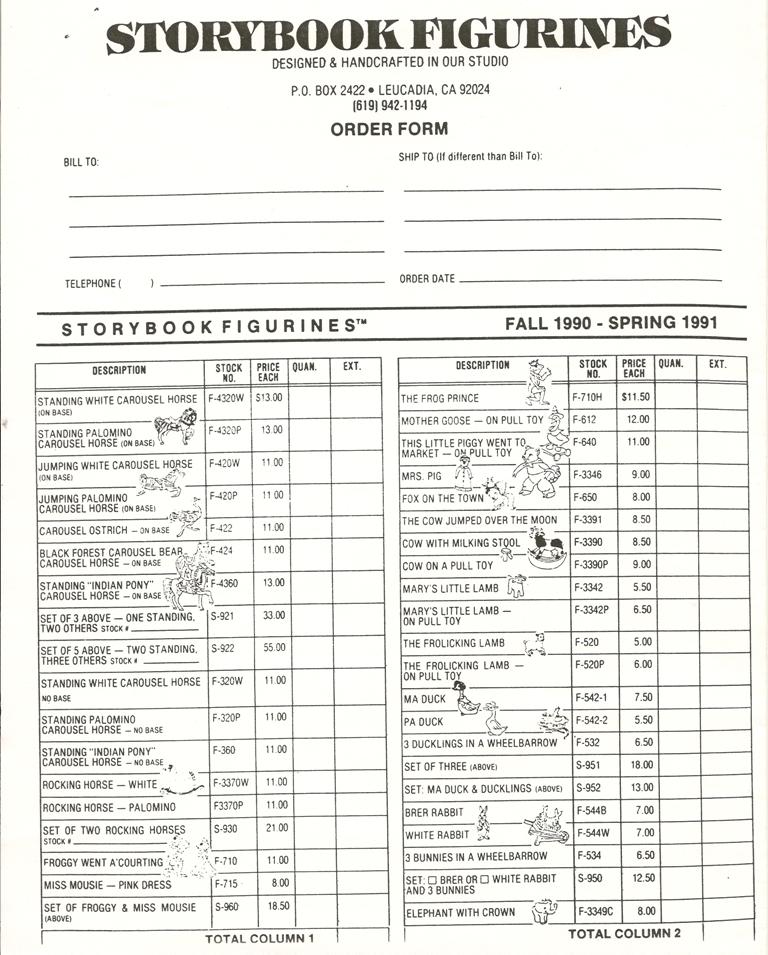 STORYBOOK FIGURINES
DESIGNED & HANDCRAFTED IN OUR STUDIO
P.O. BOX 2422 • LEUCADIA, CA 92024
(619) 942-1194
ORDER FORM
BILL TO:
SHIP TO (If different than Bill To):
TELEPHONE ( )
ORDER DATE
STORYBOOK FIGURINES™
FALL 1990 - SPRING 1991
DESCRIPTION STOCK NO. PRICE EACH QUAN. EXT.
STANDING WHITE CAROUSEL HORSE F-4320W $13.00
(ON BASE)
STANDING PALOMINO F-4320P 13.00
CAROUSEL HORSE (ON BASE)
JUMPING WHITE CAROUSEL HORSE F-420W 11.00
(ON BASE)
JUMPING PALOMINO F-420P 11.00
CAROUSEL HORSE (ON BASE)
CAROUSEL OSTRICH — ON BASE F-422 11.00
BLACK FOREST CAROUSEL BEAR F-424 11.00
CAROUSEL HORSE — ON BASE
STANDING "INDIAN PONY" F-4360 13.00
CAROUSEL HORSE — ON BASE
SET OF 3 ABOVE — ONE STANDING, S-921 33.00
TWO OTHERS STOCK #
SET OF 5 ABOVE — TWO STANDING, S-922 55.00
THREE OTHERS STOCK #
STANDING WHITE CAROUSEL HORSE F-320W 11.00
NO BASE
STANDING PALOMINO F-320P 11.00
CAROUSEL HORSE — NO BASE
STANDING "INDIAN PONY" F-360 11.00
CAROUSEL HORSE — NO BASE
ROCKING HORSE — WHITE F-3370W 11.00
ROCKING HORSE — PALOMINO F3370P 11.00
SET OF TWO ROCKING HORSES S-930 21.00
STOCK #
FROGGY WENT A'COURTING F-710 11.00
MISS MOUSIE — PINK DRESS F-715 8.00
SET OF FROGGY & MISS MOUSIE S-960 18.50
(ABOVE)
TOTAL COLUMN 1
DESCRIPTION STOCK NO. PRICE EACH QUAN. EXT.
THE FROG PRINCE F-710H $11.50
MOTHER GOOSE — ON PULL TOY F-612 12.00
THIS LITTLE PIGGY WENT TO F-640 11.00
MARKET — ON PULL TOY
MRS. PIG F-3346 9.00
FOX ON THE TOWN F-650 8.00
THE COW JUMPED OVER THE MOON F-3391 8.50
COW WITH MILKING STOOL F-3390 8.50
COW ON A PULL TOY F-3390P 9.00
MARY'S LITTLE LAMB F-3342 5.50
MARY'S LITTLE LAMB — F-3342P 6.50
ON PULL TOY
THE FROLICKING LAMB F-520 5.00
THE FROLICKING LAMB — F-520P 6.00
ON PULL TOY
MA DUCK F-542-1 7.50
PA DUCK F-542-2 5.50
3 DUCKLINGS IN A WHEELBARROW F-532 6.50
SET OF THREE (ABOVE) S-951 18.00
SET: MA DUCK & DUCKLINGS (ABOVE) S-952 13.00
BRER RABBIT F-544B 7.00
WHITE RABBIT F-544W 7.00
3 BUNNIES IN A WHEELBARROW F-534 6.50
SET: ☐ BRER OR ☐ WHITE RABBIT S-950 12.50
AND 3 BUNNIES
ELEPHANT WITH CROWN F-3349C 8.00
TOTAL COLUMN 2